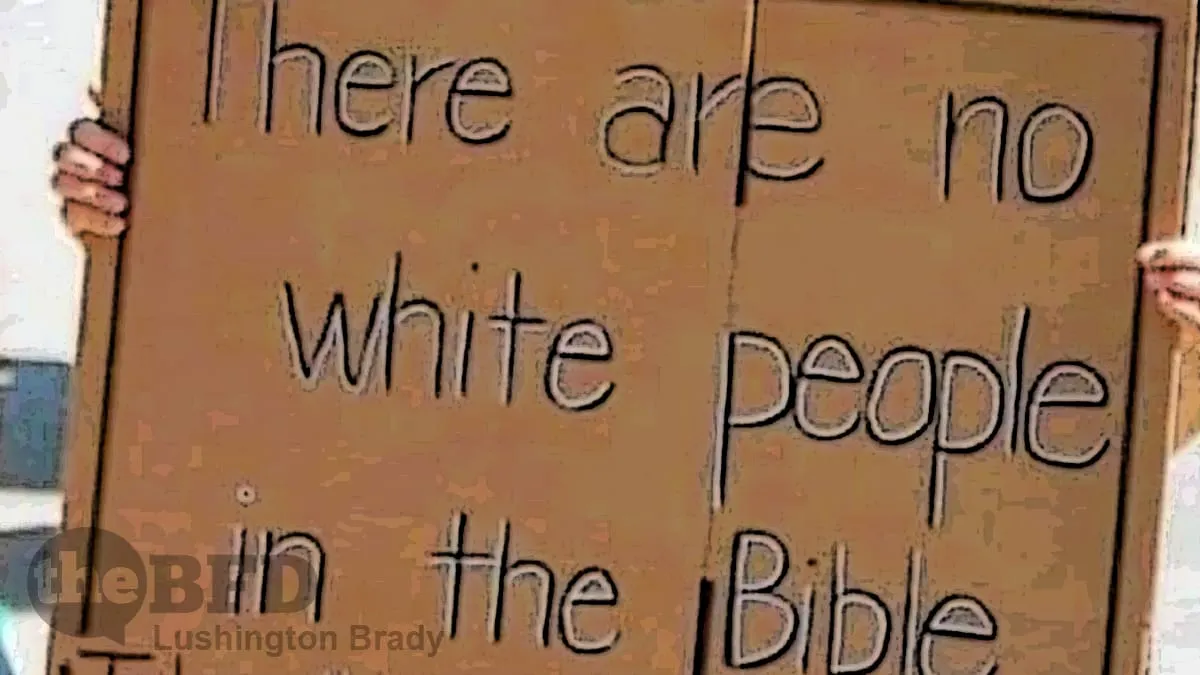 There are no
white people
in the Bible
theBFD
Lushington Brady